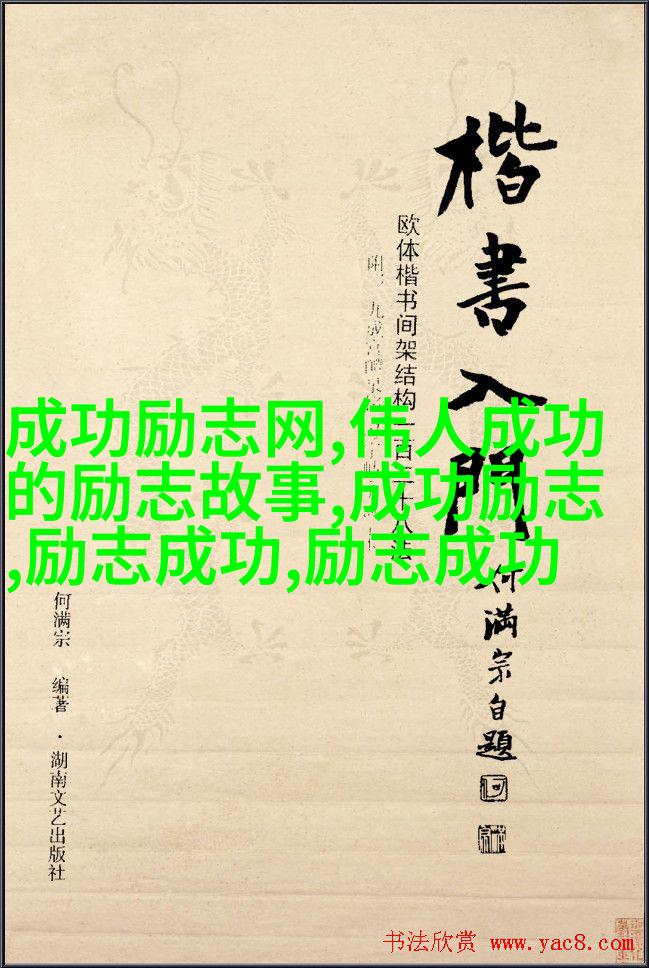 楷書入門
何满宗自題
欧体楷书间架结构一百二十八法
成功励志网,伟人成功
的励志故事,成功励志
,励志成功,励志成功
何满宗 编著·湖南文艺出版社
书法欣赏 www.yac8.com